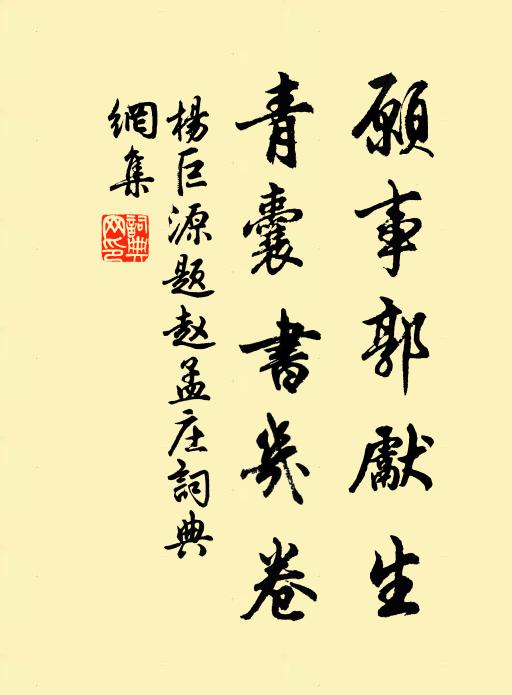 願事郭獻生
青囊書幾卷
楊巨源題赵孟庄詞典
網集
詞典
网印